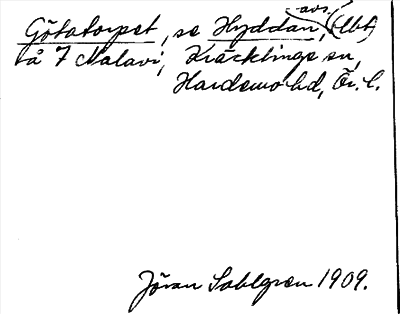 Götatorpet, se Hyddan, avs. (lbt)
å 7 Malavi, Kräcklinge sn,
Hardemo hd, Ör. l.
Jöran Sahlgren 1909.